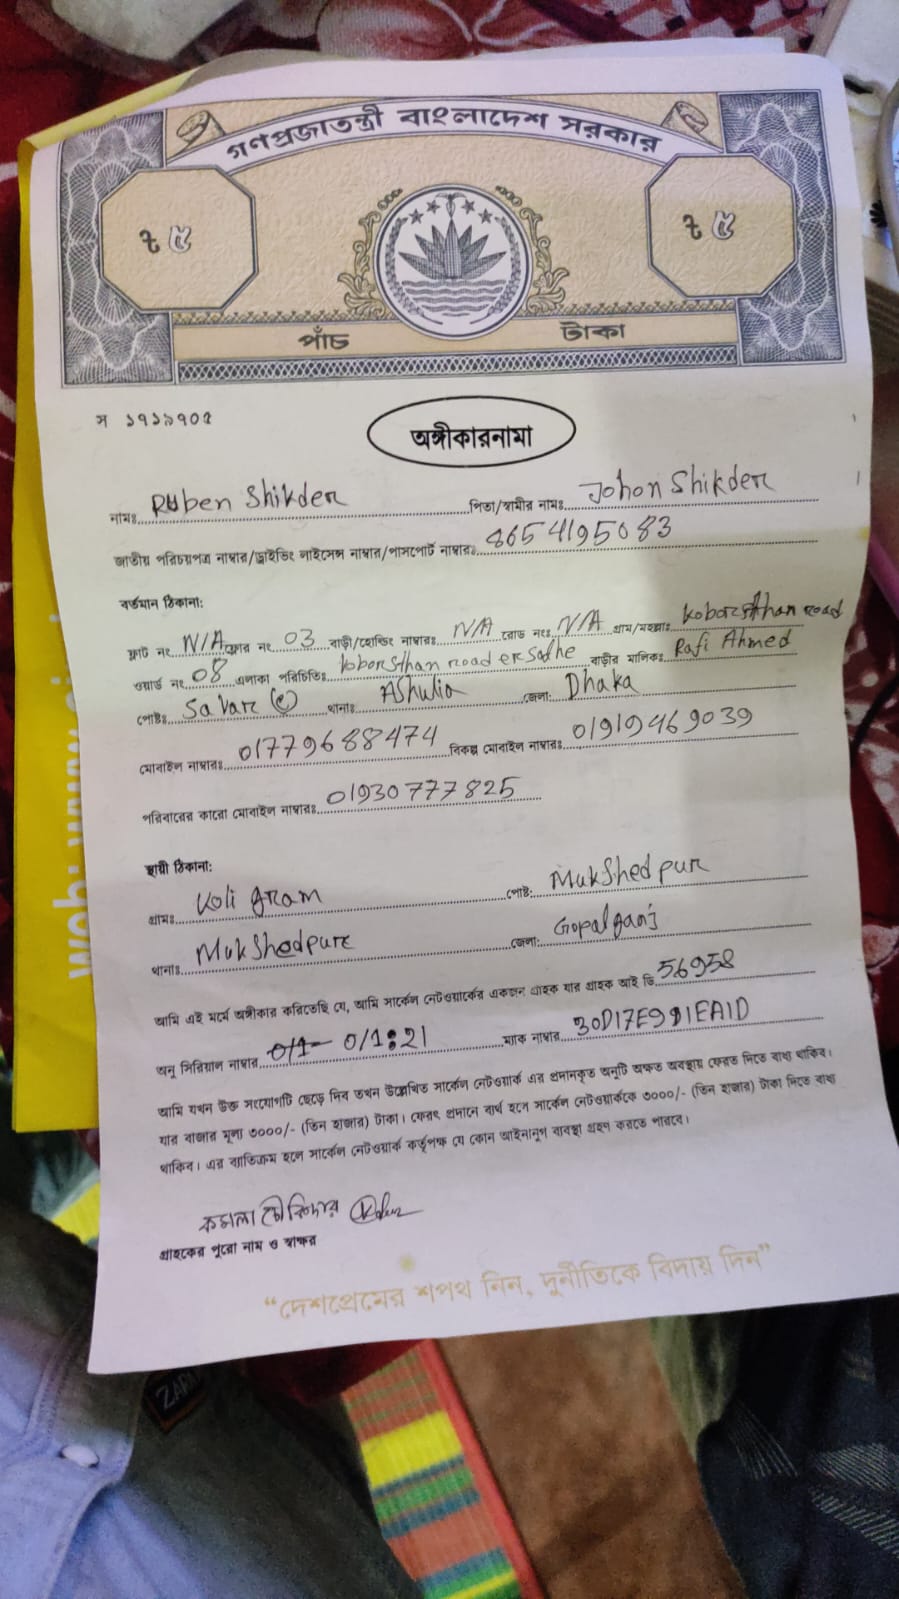 গণপ্রজাতন্ত্রী বাংলাদেশ সরকার
৳ ৫ ৳ ৫
পাঁচ টাকা
স ১৭১৯৭০৫
অঙ্গীকারনামা
নামঃ Ruben Shikder পিতা/স্বামীর নামঃ Johon Shikder
জাতীয় পরিচয়পত্র নাম্বার/ড্রাইভিং লাইসেন্স নাম্বার/পাসপোর্ট নাম্বারঃ 8654195083
বর্তমান ঠিকানা:
ফ্ল্যাট নং N/A ফ্লোর নং 03 বাড়ী/হোল্ডিং নাম্বারঃ N/A রোড নংঃ N/A গ্রাম/মহল্লাঃ Koborsthan road
ওয়ার্ড নং 08 এলাকা পরিচিতিঃ koborsthan road er sathe বাড়ীর মালিকঃ Rafi Ahmed
পোষ্টঃ Savar থানাঃ AShulia জেলা: Dhaka
মোবাইল নাম্বারঃ 01779688474 বিকল্প মোবাইল নাম্বারঃ 01919469039
পরিবারের কারো মোবাইল নাম্বারঃ 01930777825
স্থায়ী ঠিকানা:
গ্রামঃ Koli gram পোষ্ট: MukShedpur
থানাঃ MukShedpure জেলা: Gopalganj
আমি এই মর্মে অঙ্গীকার করিতেছি যে, আমি সার্কেল নেটওয়ার্কের একজন গ্রাহক যার গ্রাহক আই ডি 56958
অনু সিরিয়াল নাম্বার 0/1- 0/1:21 ম্যাক নাম্বার 30D17E991EA1D
আমি যখন উক্ত সংযোগটি ছেড়ে দিব তখন উল্লেখিত সার্কেল নেটওয়ার্ক এর প্রদানকৃত অনুটি অক্ষত অবস্থায় ফেরত দিতে বাধ্য থাকিব।
যার বাজার মূল্য ৩০০০/- (তিন হাজার) টাকা। ফেরৎ প্রদানে ব্যর্থ হলে সার্কেল নেটওয়ার্ককে ৩০০০/- (তিন হাজার) টাকা দিতে বাধ্য
থাকিব। এর ব্যতিক্রম হলে সার্কেল নেটওয়ার্ক কর্তৃপক্ষ যে কোন আইনানুগ ব্যবস্থা গ্রহণ করতে পারবে।
কমলা চৌকিদার
গ্রাহকের পুরো নাম ও স্বাক্ষর
“দেশপ্রেমের শপথ নিন, দুর্নীতিকে বিদায় দিন”